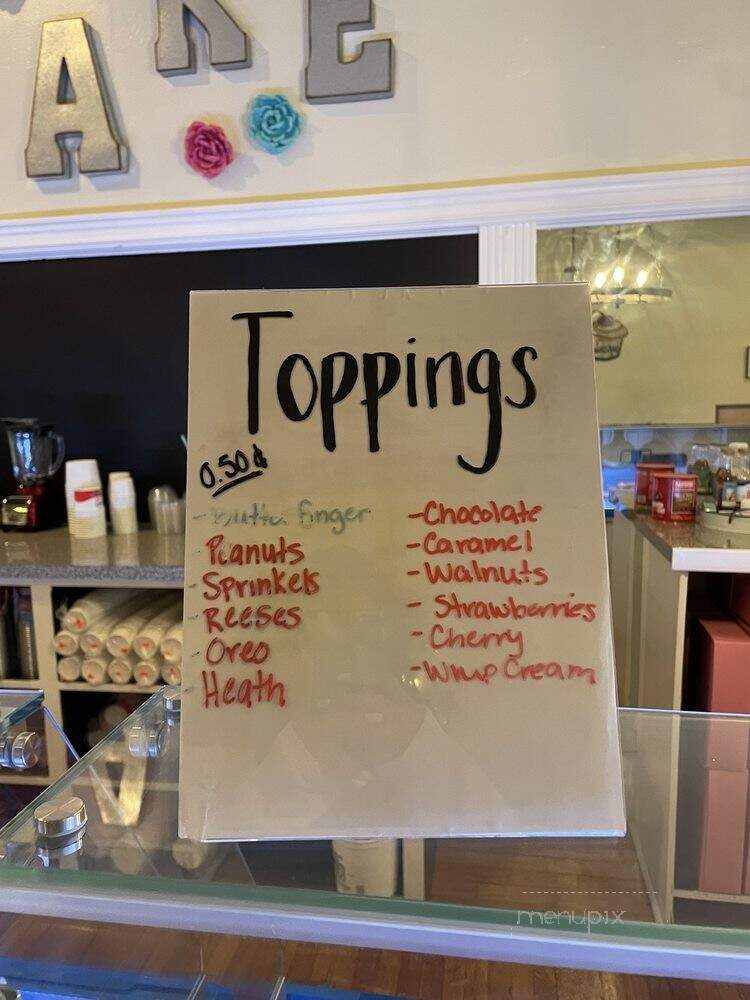 AKE
Toppings
0.50¢
- Butter finger
- Peanuts
- Sprinkels
- Reeses
- Oreo
- Heath
- Chocolate
- Caramel
- Walnuts
- Strawberries
- Cherry
- Whip Cream
menupix